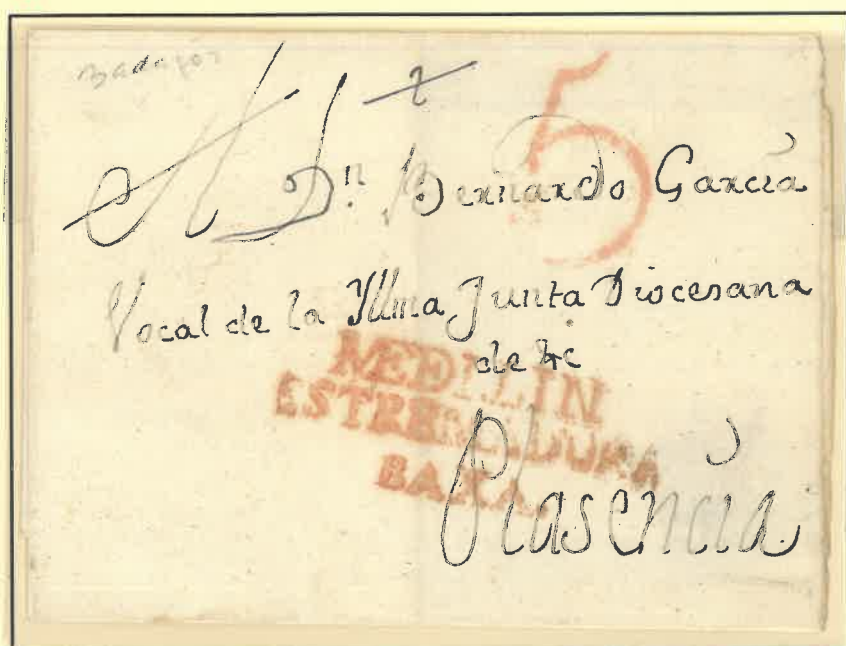 Badajoz
5
A Dn. Bernardo García
Vocal de la Yllma Junta Diocesana
de &c
MEDELLIN
ESTREMADURA
BAXA.
Plasencia